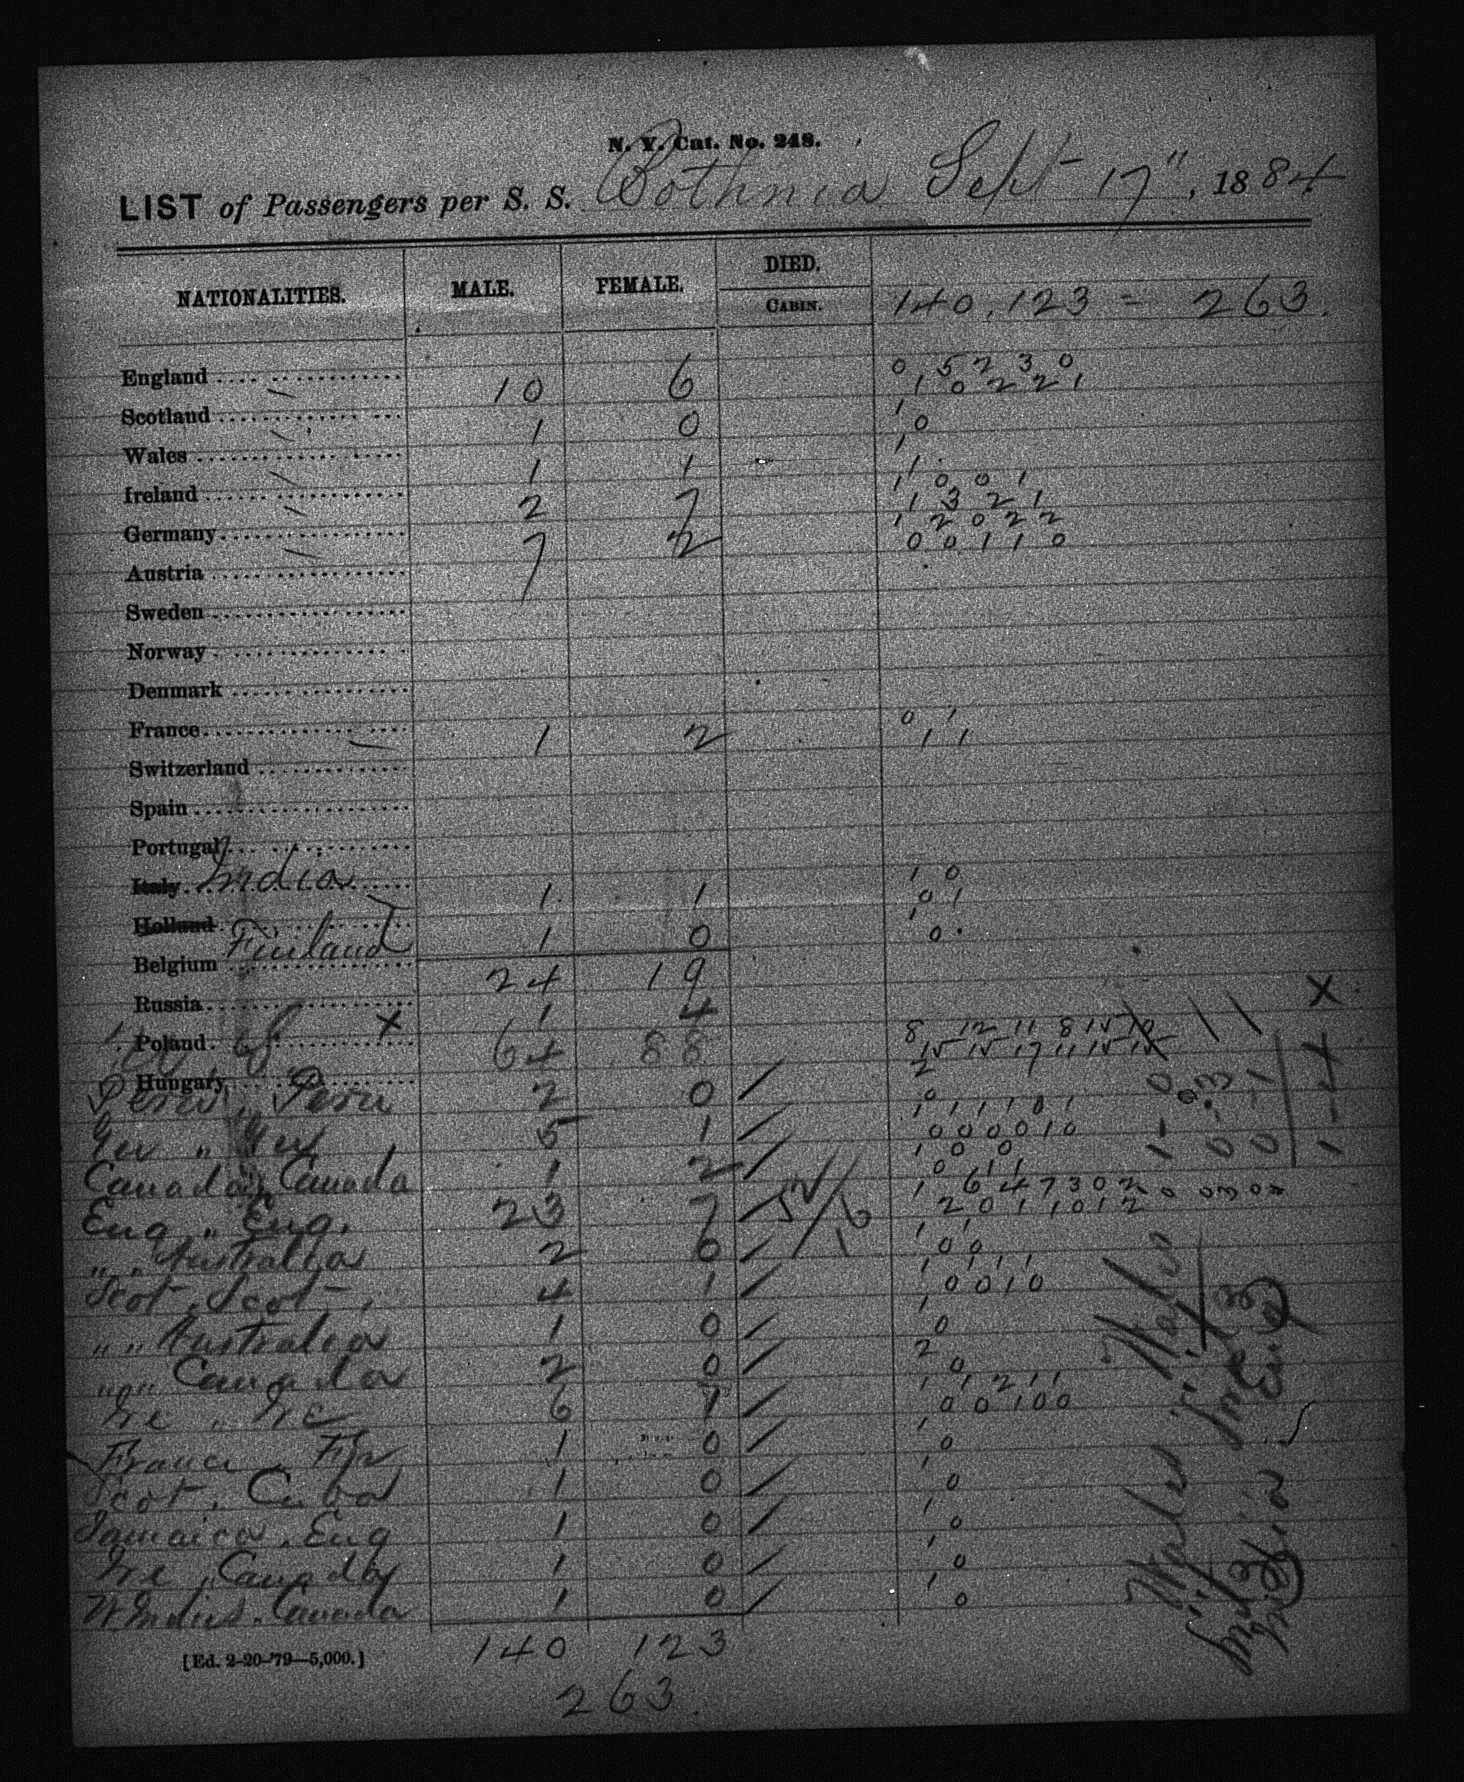 N. Y. Cat. No. 248.
LIST of Passengers per S. S. Bothnia Sept 17", 1884
NATIONALITIES. MALE. FEMALE. DIED.
CABIN.
140.123 = 263.
England 10 6 0 5 2 3 0
1 0 2 2 1
Scotland 1 0 1
0
Wales 1 1 1
1
Ireland 2 7 1 0 0 1
1 3 2 1
Germany 7 2 1 2 0 2 2
0 0 1 1 0
Austria
Sweden
Norway
Denmark
France 1 2 0 1
1 1
Switzerland
Spain
Portugal
Italy India 1 1 1 0
0 1
Holland Finland 1 0 1
0
Belgium 24 19
Russia 1 4
Poland X 64 88 8 12 11 8 15 10
15 15 17 11 15 15
X
Hungary
Peru, Peru 2 0 2
0
5 1 1 1 1 1 0 1
0 0 0 0 1 0
Canada, Canada 1 2 1 0 0
0 1 1
Eng " Eng. 23 7 1 6 4 7 3 0 2
2 0 1 1 0 1 2
" " Australia 2 0 1 1
0 0
Scot, Scot 4 1 1 1 1 1
0 0 1 0
" " Australia 1 0 1
0
" " Canada 2 0 2
0
Ire " Ire 6 1 1 1 2 1 1
0 0 1 0 0
France 1 0 1
0
Scot, Cuba 1 0 1
0
Jamaica, Eng 1 0 1
0
Ire, Canada 1 0 1
0
W Indies. Canada 1 0 1
0
140 123
263
[Ed. 2-20-'79—5,000.]
Wales
Eng
Wales
India